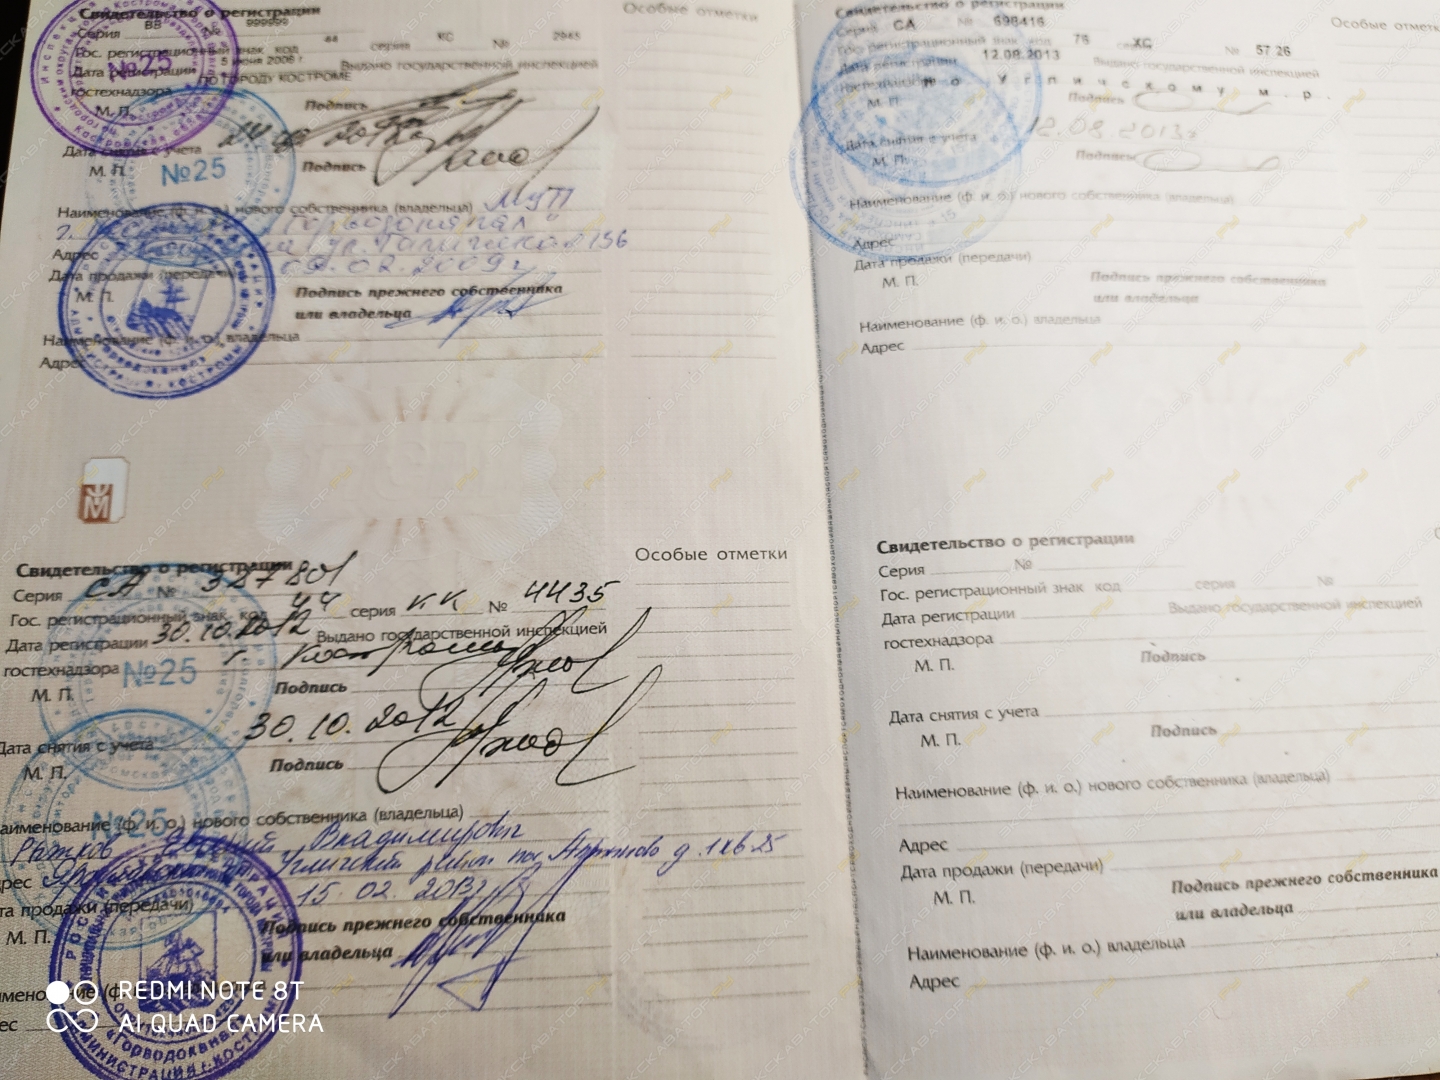 Свидетельство о регистрации
Особые отметки
Серия ВВ № 999999
Гос. регистрационный знак код 44 серия КС № 2945
Дата регистрации 5 июня 2008 г Выдано государственной инспекцией
гостехнадзора ПО ГОРОДУ КОСТРОМЕ
М. П. Подпись
№25
Дата снятия с учета
М. П. Подпись
№25
Наименование (ф. и. о.) нового собственника (владельца) МУП
г.
Адрес 156
Дата продажи (передачи) 09.02.2009 г
М. П. Подпись прежнего собственника
или владельца
Наименование (ф. и. о.) владельца
Адрес
Свидетельство о регистрации
Особые отметки
Серия СА № 327801
Гос. регистрационный знак код 44 серия КК № 4435
Дата регистрации 30.10.2012 Выдано государственной инспекцией
гостехнадзора г. Костромы
М. П. Подпись
№25
Дата снятия с учета 30.10.2012
М. П. Подпись
№25
Наименование (ф. и. о.) нового собственника (владельца)
Евгений Владимирович
Адрес Угличский район пос д. 1 кв 25
Дата продажи (передачи) 15.02.2013г
М. П. Подпись прежнего собственника
или владельца
«Горводоканал»
АДМИНИСТРАЦИЯ г. КОСТРОМЫ
REDMI NOTE 8T
AI QUAD CAMERA
Свидетельство о регистрации
Особые отметки
Серия СА № 698416
Гос. регистрационный знак код 76 серия ХС № 57 26
Дата регистрации 12.08.2013 Выдано государственной инспекцией
гостехнадзора по Угличскому м.р.
М. П. Подпись
Дата снятия с учета 12.08.2013г
М. П. Подпись
Наименование (ф. и. о.) нового собственника (владельца)
Адрес
Дата продажи (передачи)
М. П. Подпись прежнего собственника
или владельца
Наименование (ф. и. о.) владельца
Адрес
Свидетельство о регистрации
Серия №
Гос. регистрационный знак код серия №
Дата регистрации Выдано государственной инспекцией
гостехнадзора
М. П. Подпись
Дата снятия с учета
М. П. Подпись
Наименование (ф. и. о.) нового собственника (владельца)
Адрес
Дата продажи (передачи)
М. П. Подпись прежнего собственника
или владельца
Наименование (ф. и. о.) владельца
Адрес